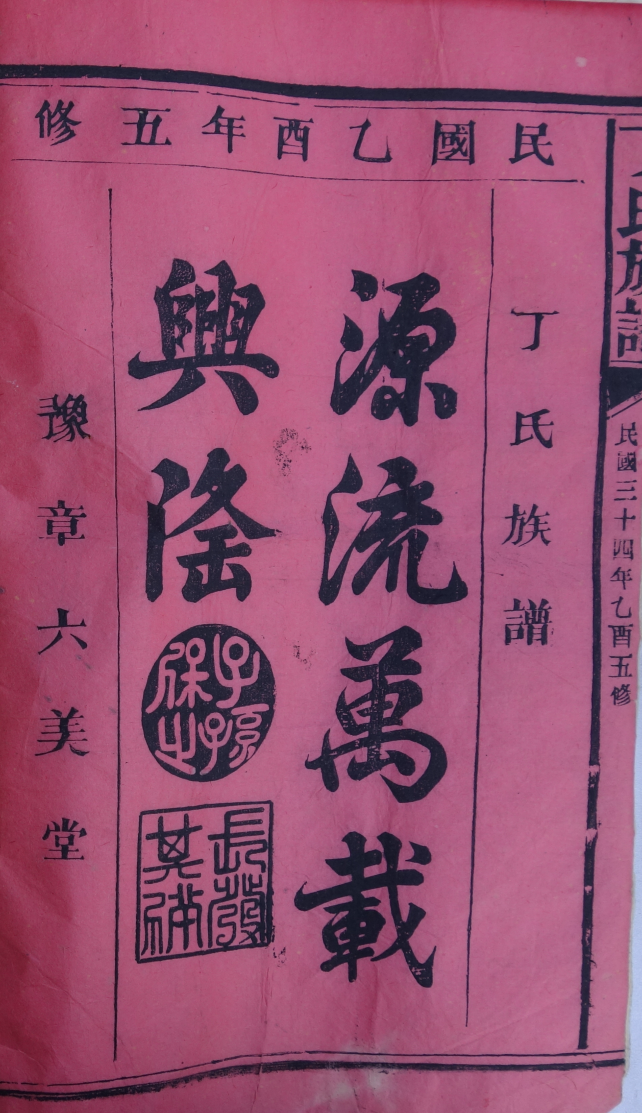 民國乙酉年五修
丁氏族譜
民國三十四年乙酉五修
丁氏族譜
源流萬載
興隆
子孫保之
長發其祥
豫章六美堂